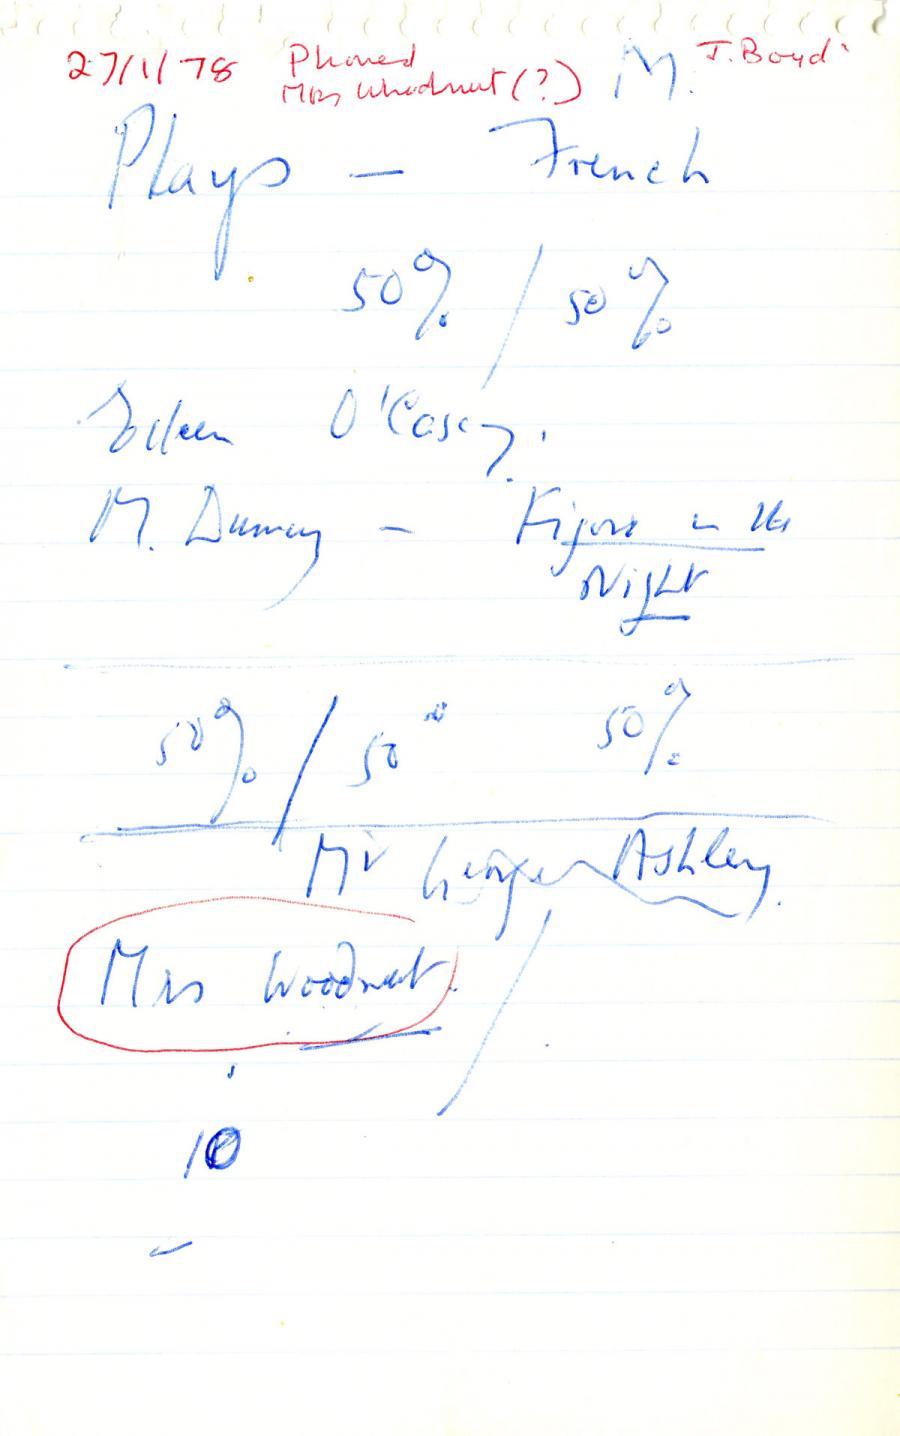 27/1/78 Phoned M. J. Boyd
Mrs Woodnut (?)
Plays — French
50% / 50%
Eileen O'Casey.
M. Durney — Figure in the
Night
50% / 50 50%
Mr George Ashley.
Mrs Woodnut.
10